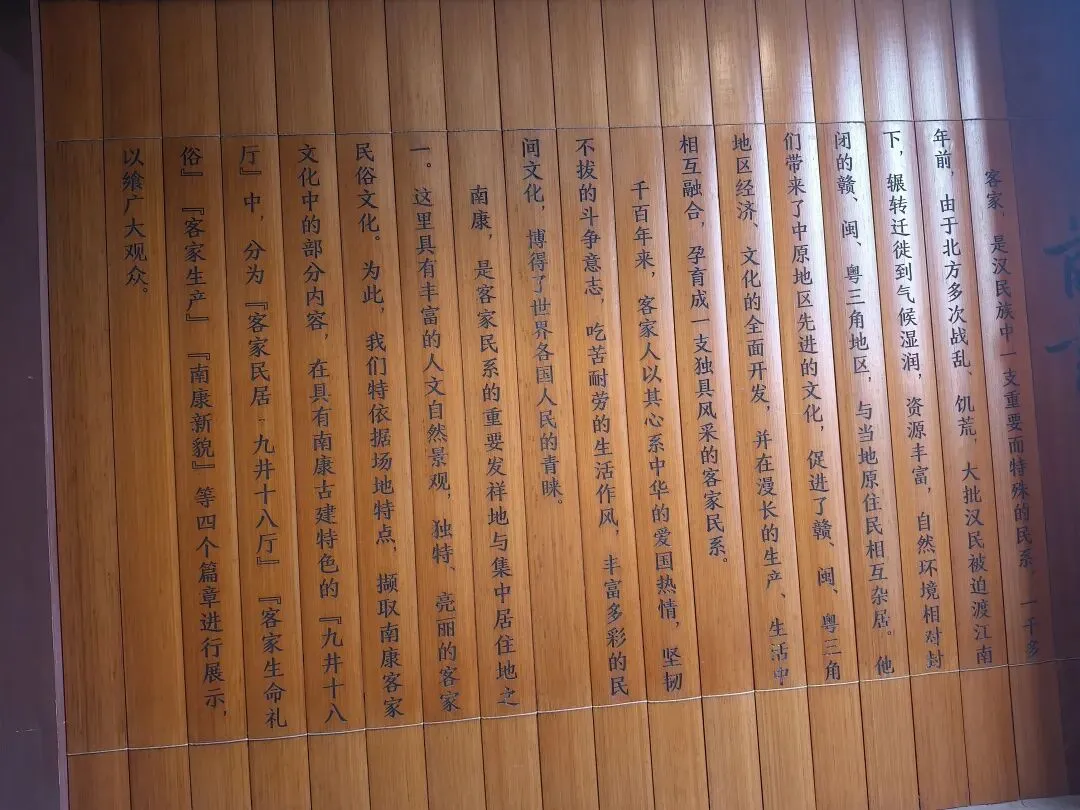 客家，是汉民族中一支重要而特殊的民系，一千多
年前，由于北方多次战乱、饥荒，大批汉民被迫渡江南
下，辗转迁徙到气候湿润，资源丰富，自然环境相对封
闭的赣、闽、粤三角地区，与当地原住民相互杂居。他
们带来了中原地区先进的文化，促进了赣、闽、粤三角
地区经济、文化的全面开发，并在漫长的生产、生活中
相互融合，孕育成一支独具风采的客家民系。
千百年来，客家人以其心系中华的爱国热情，坚韧
不拔的斗争意志，吃苦耐劳的生活作风，丰富多彩的民
间文化，博得了世界各国人民的青睐。
南康，是客家民系的重要发祥地与集中居住地之
一。这里具有丰富的人文自然景观，独特、亮丽的客家
民俗文化。为此，我们特依据场地特点，撷取南康客家
文化中的部分内容，在具有南康古建特色的『九井十八
厅』中，分为『客家民居·九井十八厅』『客家生命礼
俗』『客家生产』『南康新貌』等四个篇章进行展示，
以飨广大观众。